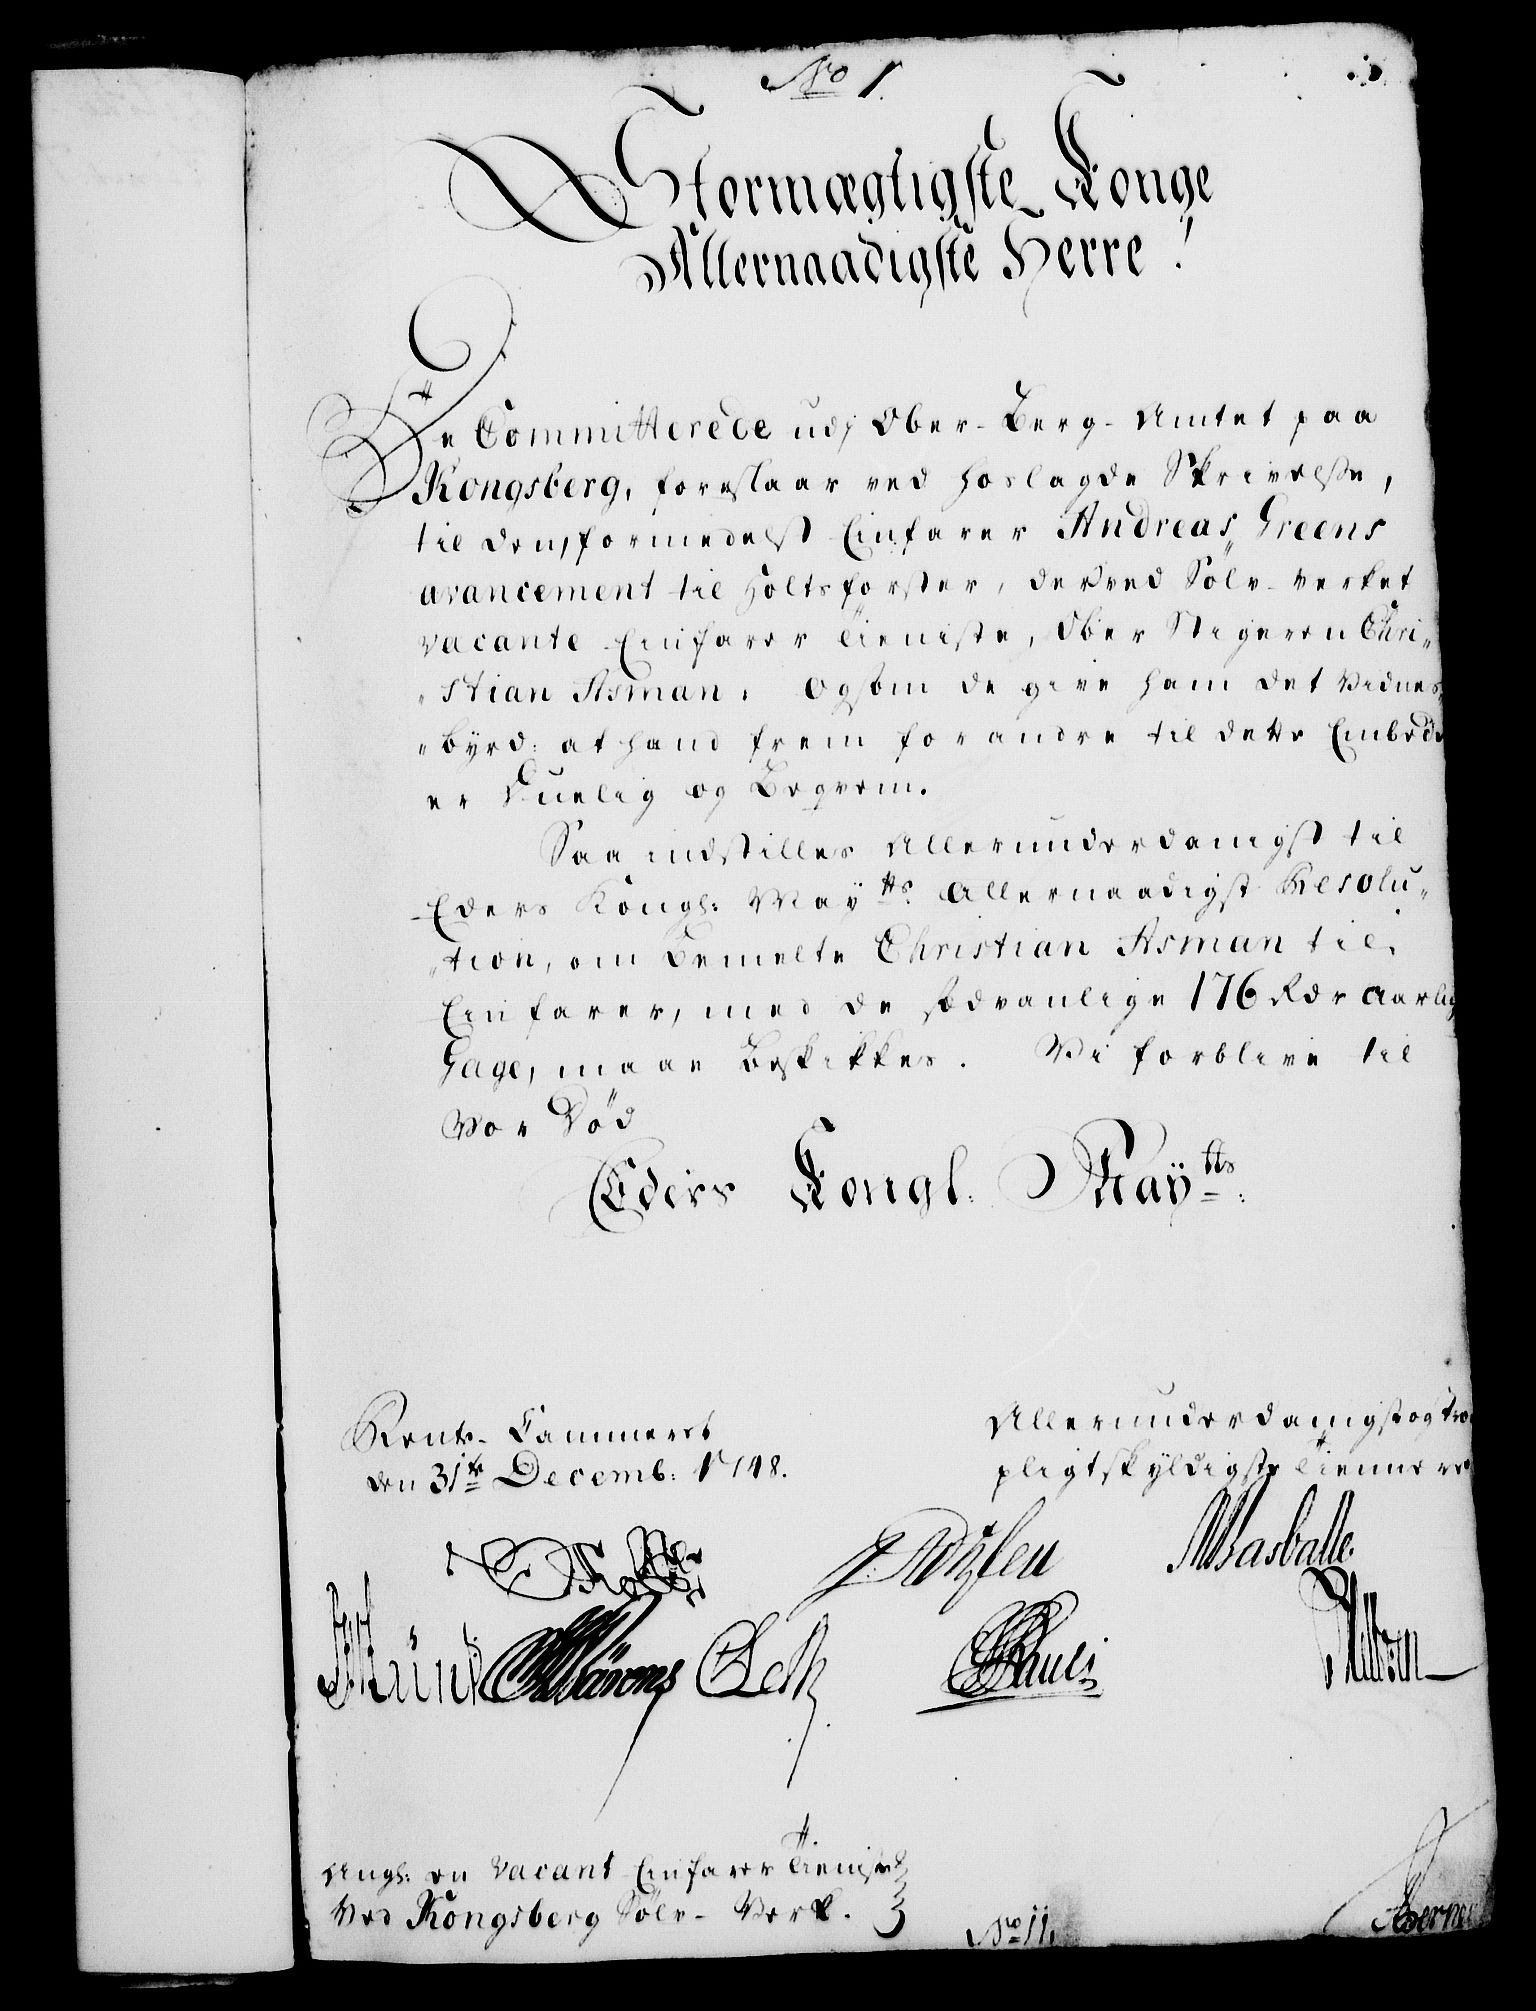 No 1.
Stormægtigste Konge
Allernaadigste Herre!
De Committerede udj Ober-Berg-Amtet paa
Kongsberg, foreslaar ved hoslagde Skrivelse,
til den, formedelst Einfarer Andreas Greens
avancement til Holtsforster, derved Sölv-verket
vacante Einfarer Tieniste, Ober Stigeren Chri„
„stian Asman. Ogsom de give ham det Vidnes„
„byrd: at hand frem for andre til dette Embede
er Duelig og Beqvem.
Saa indstilles Allerunderdanigst til
Eders Kongl: Maÿtts Allernaadigst Resolu„
„tion, om bemelte Christian Asman til
Einfarer, med de sædvanlige 176 Rdr aarlig
Gage, maae beskikkes. Vi forblive til
Vor Död
Eders Kongl. Maÿtts:
Rente-Cammeret
den 31te Decemb: 1748.
Allerunderdanigst og troe
pligtskyldigste Tiennere
Angl: en vacant Einfarer Tieniste
Ved Kongsberg Sölv-Verk.
No 11.